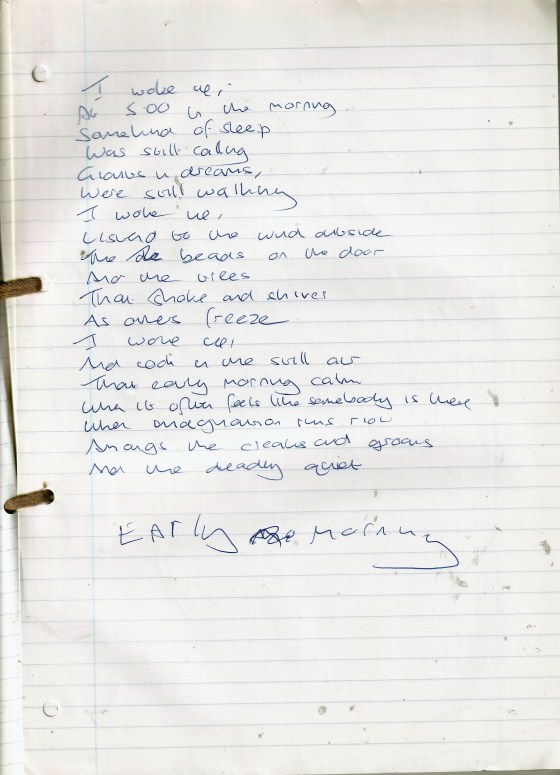 I woke up,
At 5:00 in the morning
Somekind of sleep
Was still calling
Giants in dreams,
Were still walking
I woke up,
Listend to the wind outside
The beads on the door
And the trees
That shake and shiver
As others freeze
I woke up,
And took in the still air
That early morning calm
When it often feels like somebody is there
When imagination runs riot
Amongs the creaks and groans
And the deadly quiet
EArly Morning